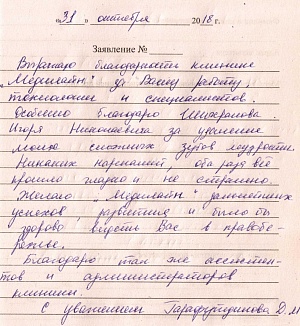 "31" октября 2018 г.
Заявление №
Выражаю благодарность клинике
"Медилайн" за Вашу работу,
технологии и специалистов.
Особенно благодарю Шихрамова
Игоря Николаевича за удаление
моих сложных зубов мудрости.
Никаких нареканий оба раза всё
прошло гладко и не страшно.
Желаю "Медилайн" дальнейших
успехов, развития и было бы
здорово видеть Вас в правобе-
режье.
Благодарю так же ассистен-
тов и администраторов
клиники.
С уважением Гарафутдинова Д.М